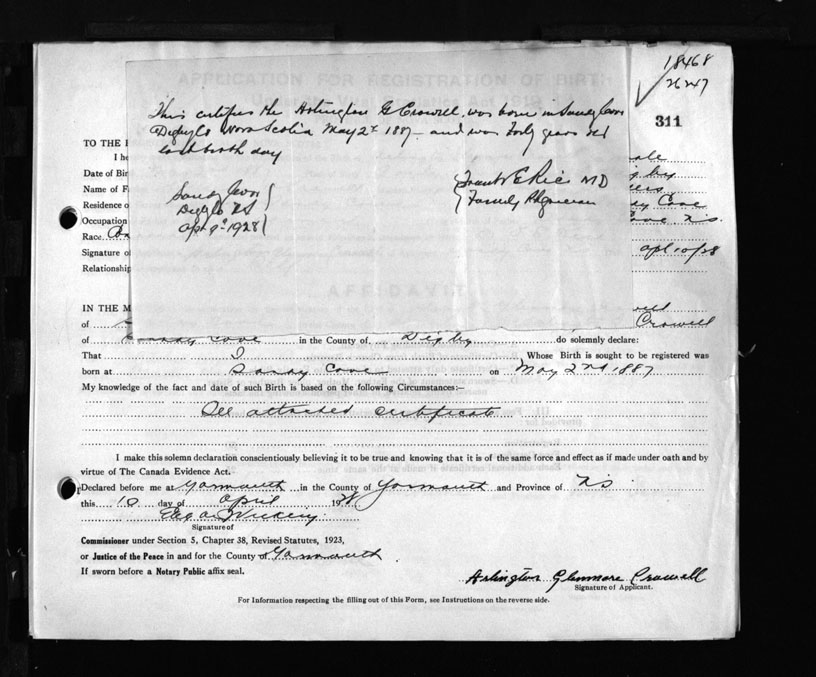 18468
26247
311
This certifies the Arlington G Crowell was born in Sandy Cove
Digby Co Nova Scotia May 2d 1887 - and was forty years old
last birth day
Sandy Cove
Digby NS
Apr 9th 1928
Frank E Rice MD
Family Physician
TO THE
I he
Date of Bir
Name of F
Residence o
Occupation
Race
Signature o
Apl 10/28
Relationship
AFFIDAVIT
IN THE M
of Crowell
of Sandy Cove in the County of Digby do solemnly declare:
That I Whose Birth is sought to be registered was
born at Sandy Cove on May 2nd 1887
My knowledge of the fact and date of such Birth is based on the following Circumstances:—
See attached certificate
I make this solemn declaration conscientiously believing it to be true and knowing that it is of the same force and effect as if made under oath and by
virtue of The Canada Evidence Act.
Declared before me at Yarmouth in the County of Yarmouth and Province of NS
this 10 day of April 1928
Signature of
Commissioner under Section 5, Chapter 38, Revised Statutes, 1923,
or Justice of the Peace in and for the County of Yarmouth
If sworn before a Notary Public affix seal.
Arlington Glenmore Crowell
Signature of Applicant.
For Information respecting the filling out of this Form, see Instructions on the reverse side.